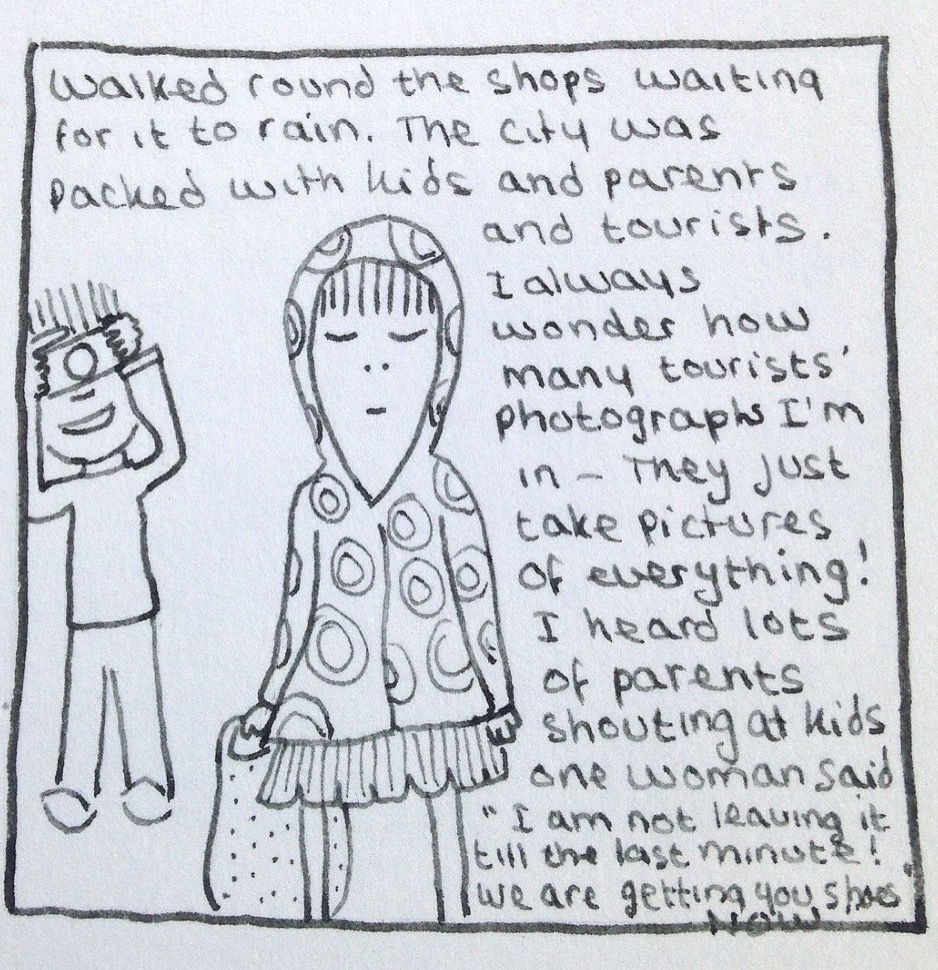 Walked round the shops waiting
for it to rain. The city was
packed with kids and parents
and tourists.
I always
wonder how
many tourists'
photographs I'm
in - They just
take pictures
of everything!
I heard lots
of parents
shouting at kids
one woman said
"I am not leaving it
till the last minute!
we are getting you shoes
NOW"